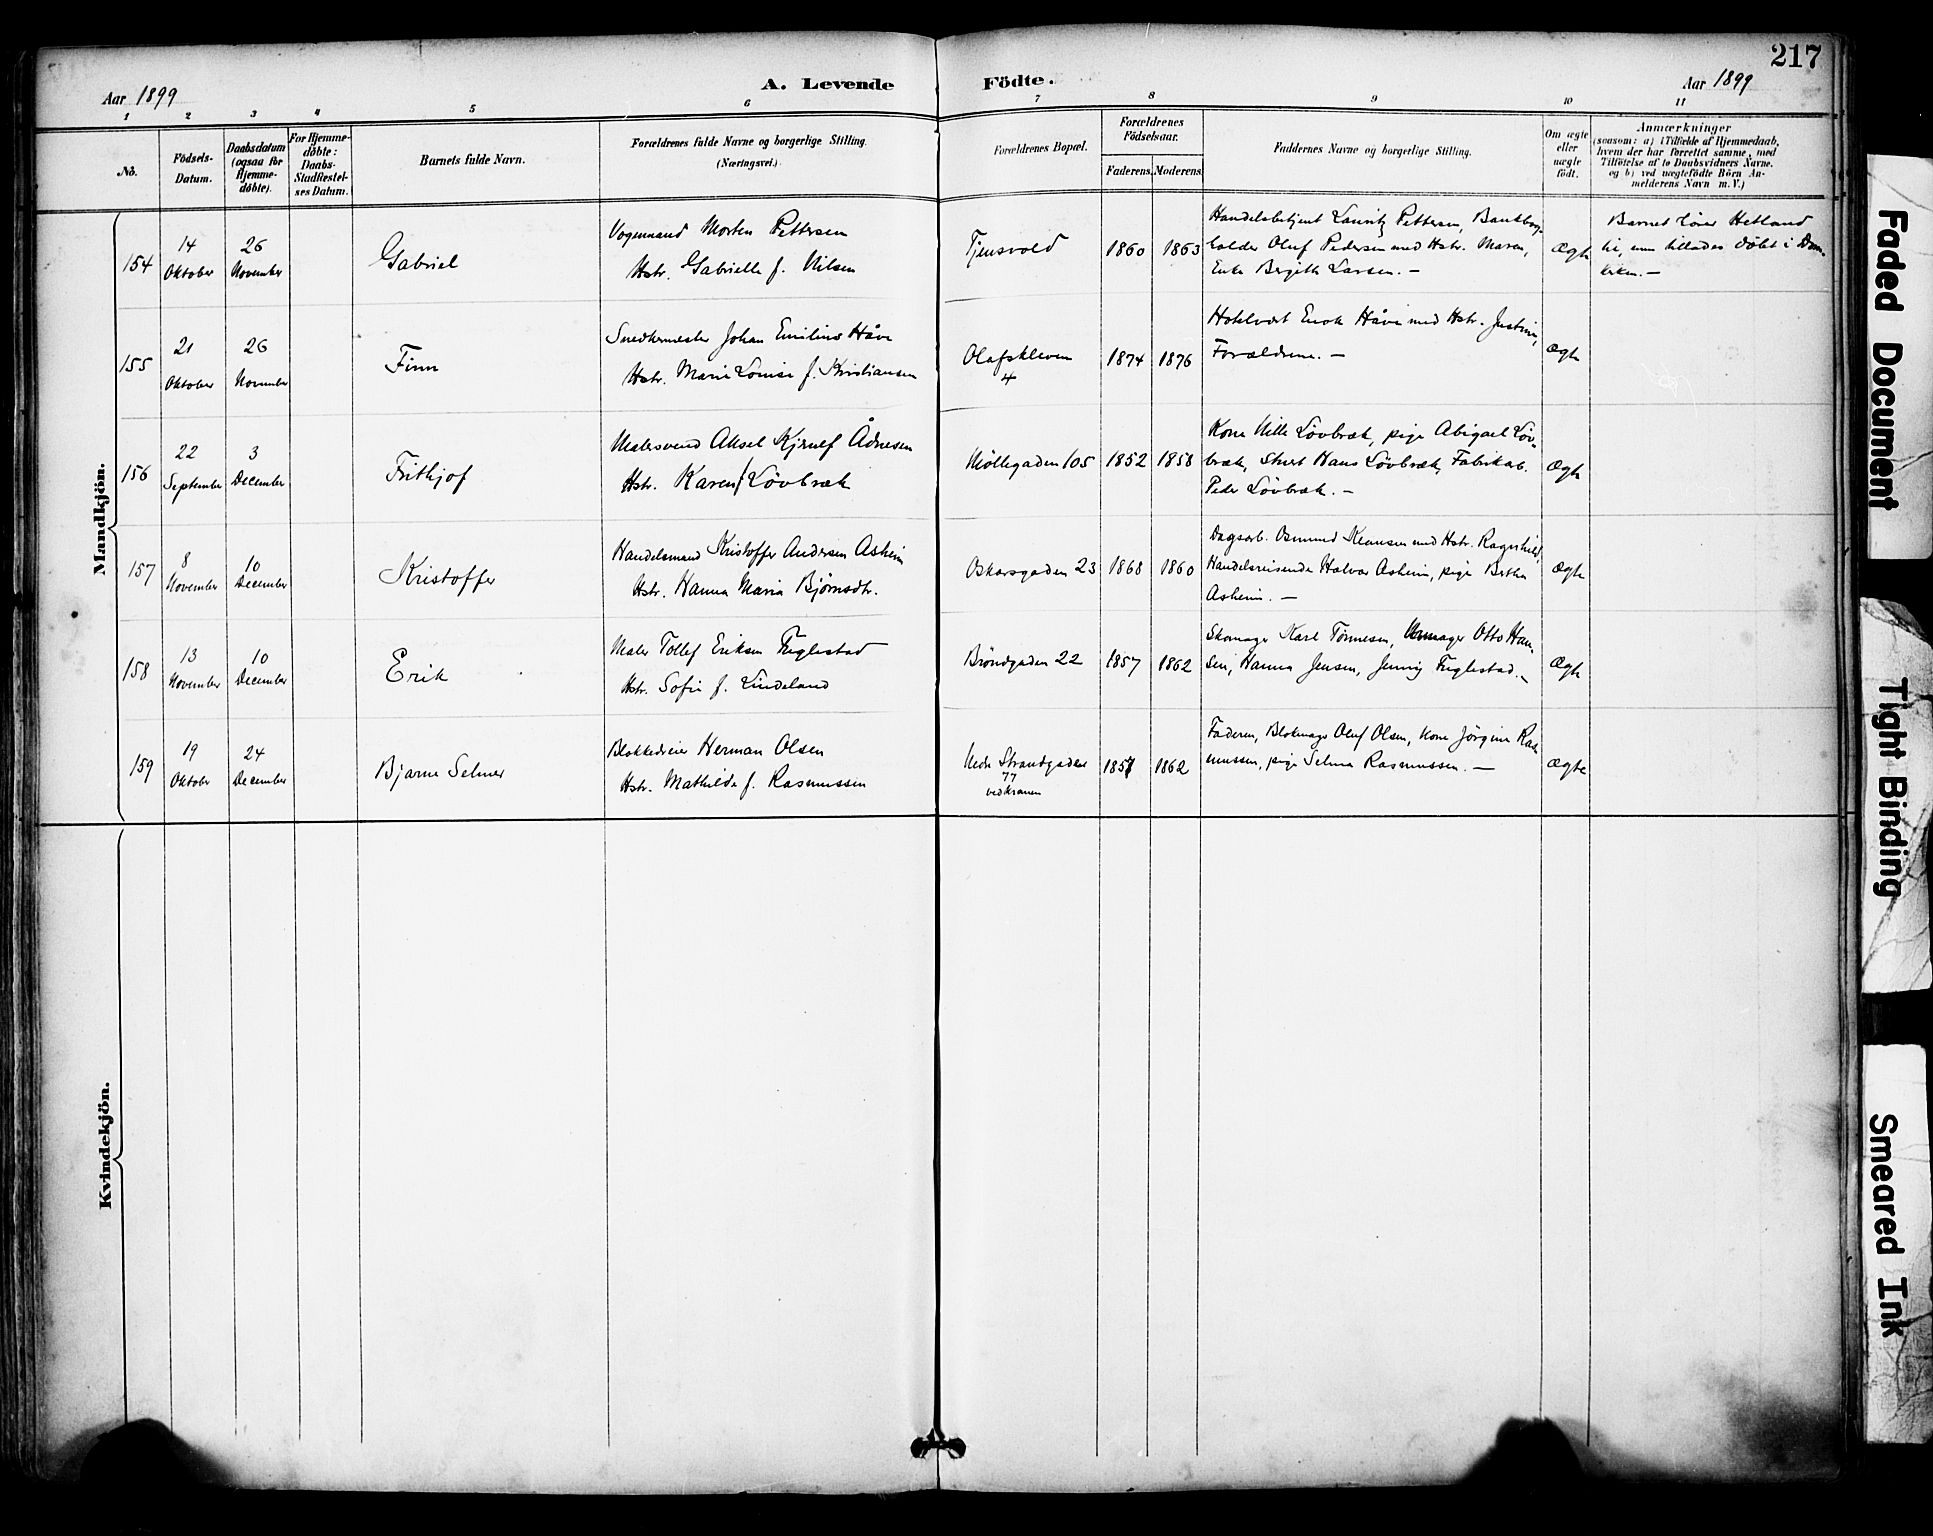 217
Aar 1899
A. Levende Födte.
Aar 1899
1 2 3 4 5 6 7 8 9 10 11
No.
Födsels-
Datum.
Daabsdatum
(ogsaa for
Hjemme-
döbte).
For Hjemme-
döbte:
Daabs-
Stadfæstel-
ses Datum.
Barnets fulde Navn.
Forældrenes fulde Navne og borgerlige Stilling.
(Næringsvei.)
Forældrenes Bopæl.
Forældrenes
Födselsaar.
Faderens. Moderens.
Faddernes Navne og borgerlige Stilling.
Om ægte
eller
uægte
födt.
Anmærkninger
(saasom: a) i Tilfælde af Hjemmedaab,
hvem der har forrettet samme, med
Tilföielse af to Daabsvidners Navne,
og b) ved uægtefödte Börn An-
melderens Navn m. V.)
Mandkjön.
154
14
Oktober
26
November
Gabriel
Vognmand Morten Pettersen
Hstr. Gabrielle f. Nilsen
Tjensvold
1860 1863
Handelsbetjent Lauritz Pettersen, Bankbog-
holder Oluf Pedersen med Hstr. Maren,
Enke Birgitte Larsen. —
Ægte
Barnet hører Hetland
til, men tillades døbt i Dom-
kirken. —
155
21
Oktober
26
November
Finn
Snedkermester Johan Emilius Håve
Hstr. Marie Louise f. Kristiansen
Olafskleven
4
1874 1876
Hotelvært Enok Håve med Hstr. Justine,
Forældrene. —
Ægte
156
22
September
3
December
Frithjof
Malersvend Aksel Kjerulf Ådnesen
Hstr. Karen f Lövbræk
Möllegaden 105
1852 1858
Kone Nille Lövbræk, pige Abigael Löv-
bræk, Stuert Hans Lövbræk, Fabrikarb.
Peder Lövbræk. —
Ægte
157
8
November
10
December
Kristoffer
Handelsmand Kristoffer Andersen Asheim
Hstr. Hanna Maria Björnsdtr.
Oskarsgaden 23
1868 1860
Dagsarb. Osmund Klausen med Hstr. Ragnhild,
Handelsreisende Halvor Asheim, pige Bertha
Asheim. —
Ægte
158
13
November
10
December
Erik
Maler Tollef Eriksen Fuglestad
Hstr. Sofie f. Lindeland
Bröndgaden 22
1857 1862
Skomager Karl Tönnesen, Urmager Otto Han-
sen, Hanna Jensen, Jenny Fuglestad. —
Ægte
159
19
Oktober
24
December
Bjarne Selmer
Blokkedreier Herman Olsen
Hstr. Mathilde f. Rasmussen
Nedre Strandgaden
77
ved kranen
1857 1862
Faderen, Blokmager Oluf Olsen, kone Jörgine Ras-
mussen, pige Selma Rasmussen. —
Ægte
Kvindekjön.
Faded Document
Tight Binding
Smeared Ink